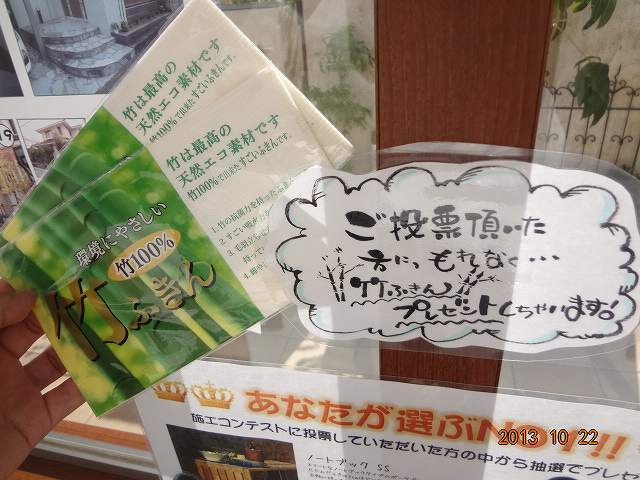 竹は最高の
天然エコ素材です
竹100%で出来たすごいふきんです。
竹は最高の
天然エコ素材です
竹100%で出来たすごいふきんです。
環境にやさしい
竹100%
竹ふきん
ご投票頂いた
方にっもれなく…
竹ふきん
プレゼントしちゃいます!
あなたが選ぶNo1!!
施工コンテストに投票していただいた方の中から抽選でプレゼ
ノートブック SS
2013 10 22